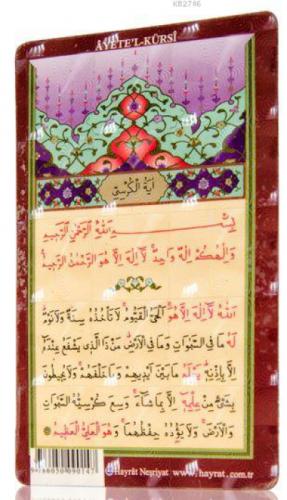 KB2746
ÂYETE'L-KÜRSÎ
اٰيَةُ الْكُرْسِيِّ
بِسْــــمِ اللّٰهِ الرَّحْمٰنِ الرَّحِيمِ
وَاِلٰهُكُمْ اِلٰهٌ وَاحِدٌ لَٓا اِلٰهَ اِلَّا هُوَ الرَّحْمٰنُ الرَّحِيمُ
اَللّٰهُ لَٓا اِلٰهَ اِلَّا هُوَ اَلْحَيُّ الْقَيُّومُ لَا تَأْخُذُهُ سِنَةٌ وَلَا نَوْمٌ
لَهُ مَا فِي السَّمٰوَاتِ وَمَا فِي الْاَرْضِ مَنْ ذَا الَّذِي يَشْفَعُ عِنْدَهُ
اِلَّا بِاِذْنِهِ يَعْلَمُ مَا بَيْنَ اَيْدِيهِمْ وَمَا خَلْفَهُمْ وَلَا يُحِيطُونَ
بِشَيْءٍ مِنْ عِلْمِهِ اِلَّا بِمَا شَٓاءَ وَسِعَ كُرْسِيُّهُ السَّمٰوَاتِ
وَالْاَرْضَ وَلَا يَؤُدُهُ حِفْظُهُمَا وَهُوَ الْعَلِيُّ الْعَظِيمُ
Hayrât Neşriyat www.hayrat.com.tr